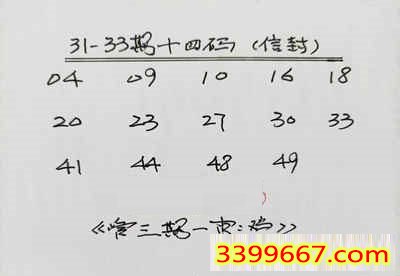 31-33期十四码(信封)
04 09 10 16 18
20 23 27 30 33
41 44 48 49
《管三期一肖:鸡》
3399667.com